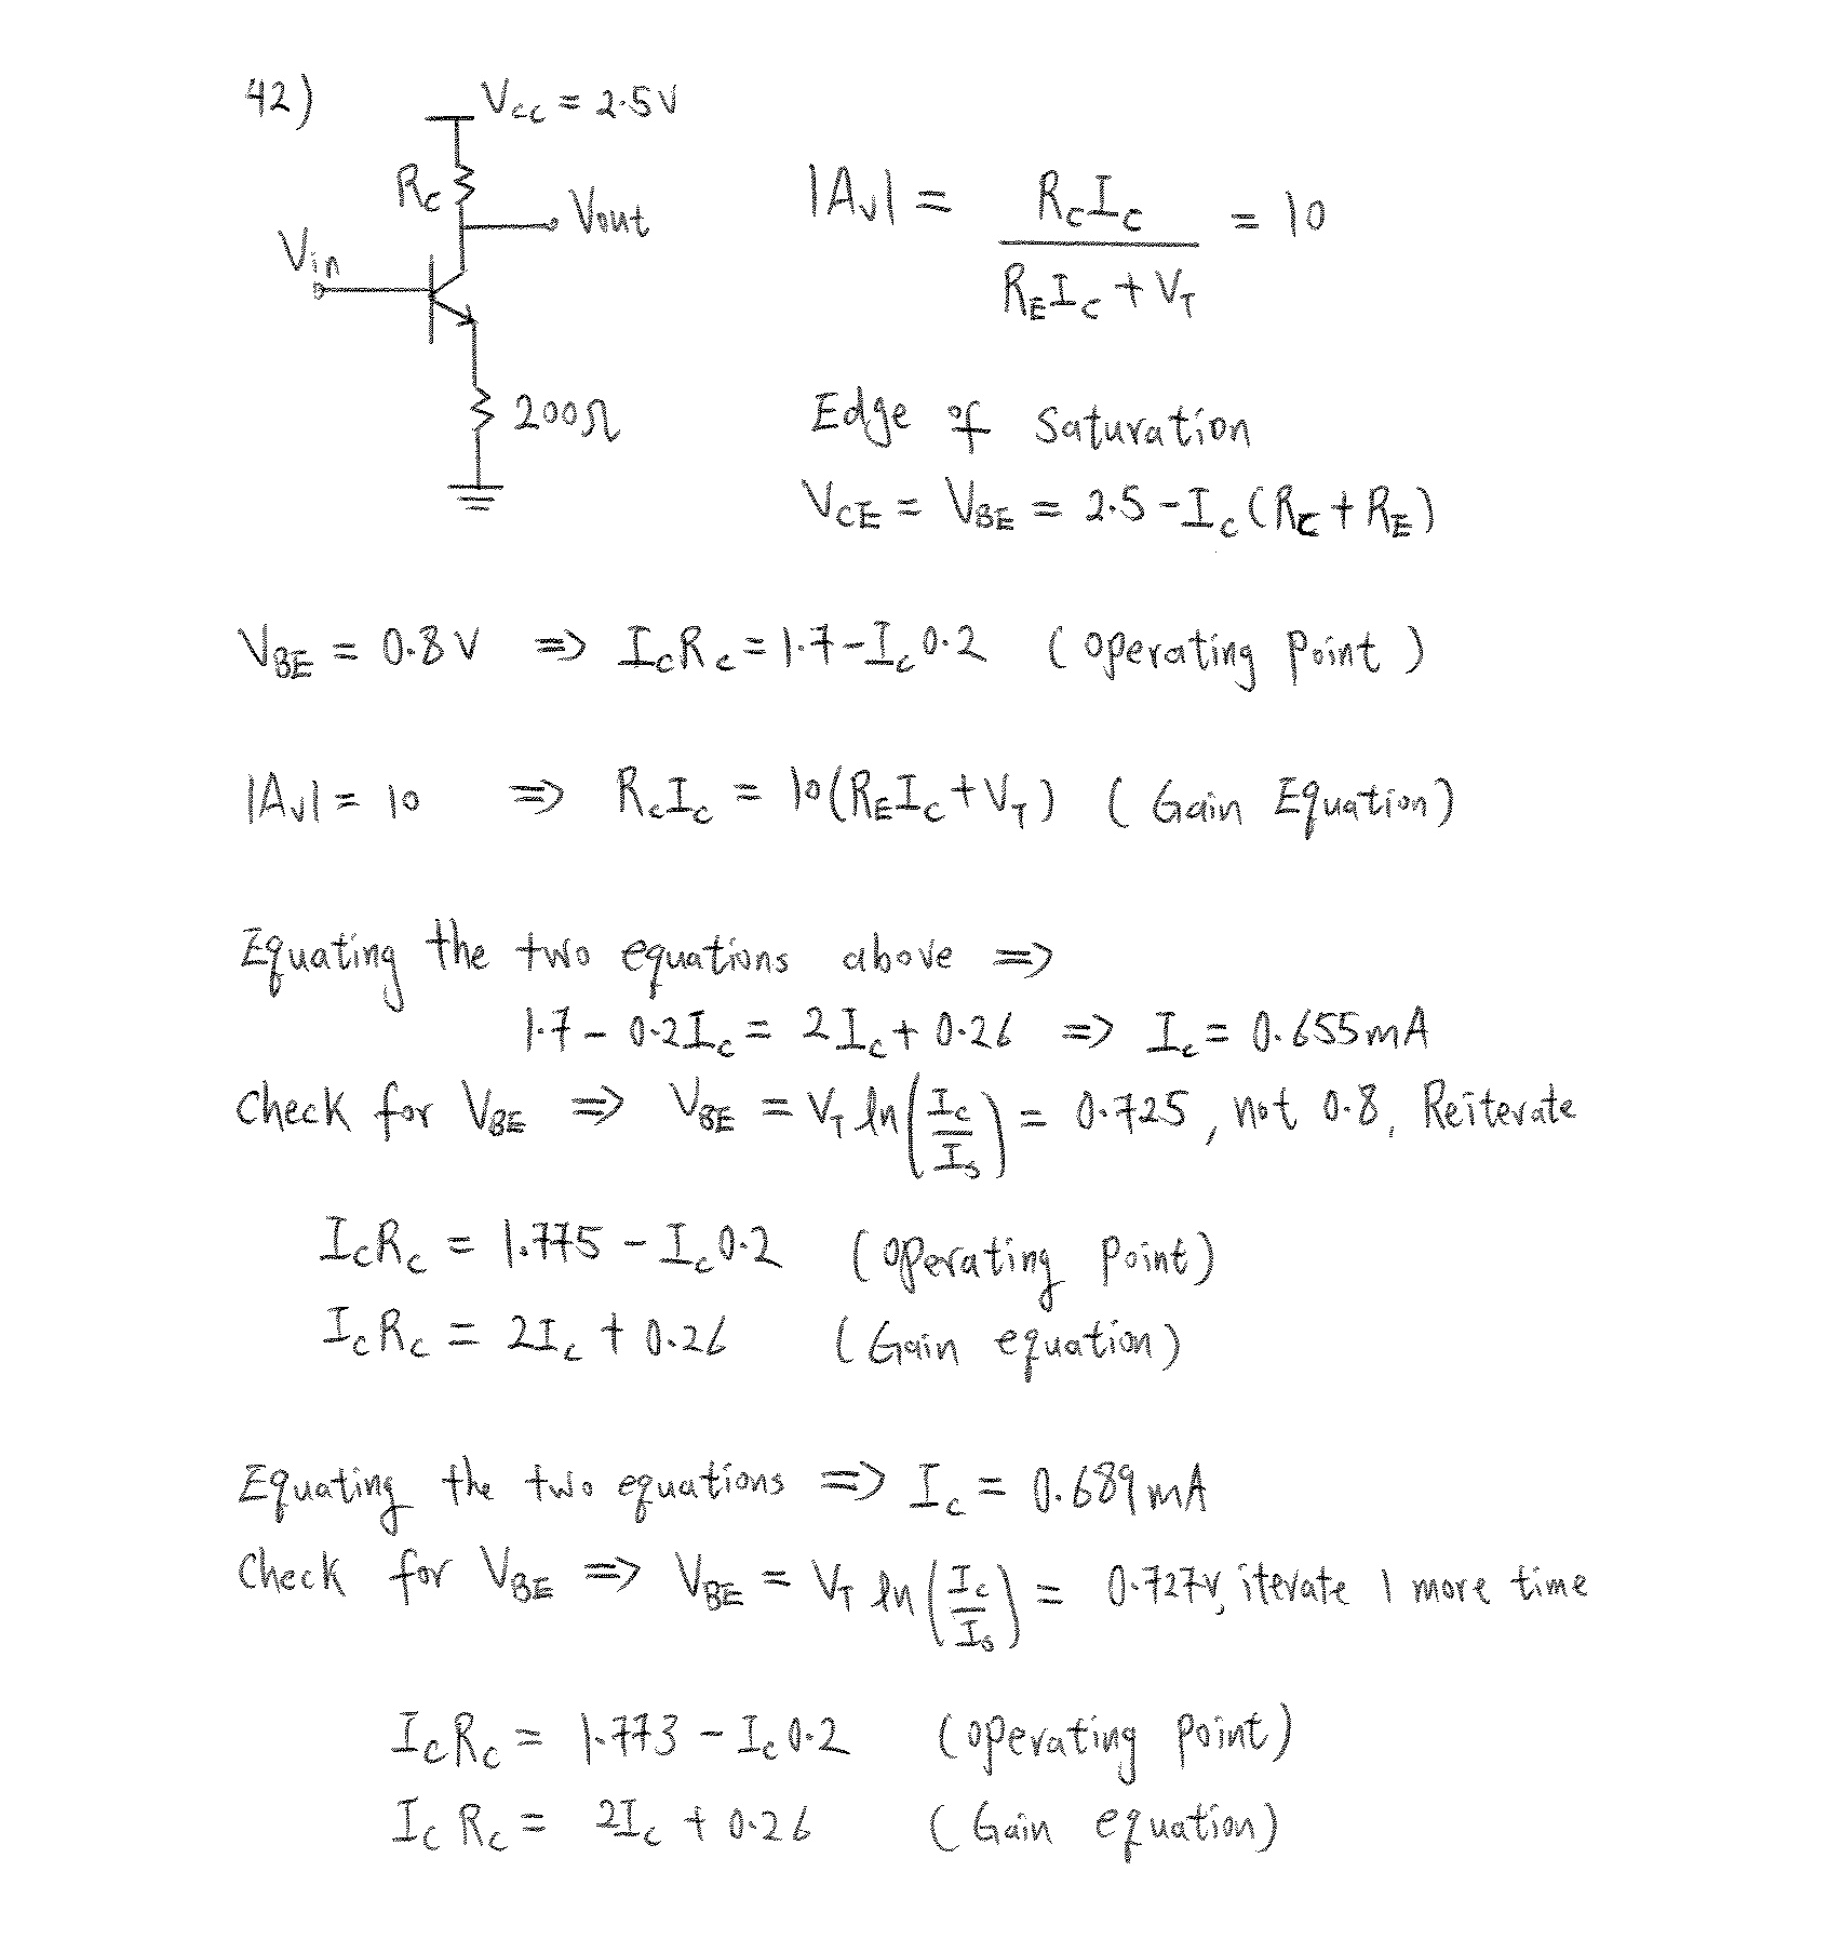 42)
V_CC = 2.5V
R_C
Vout
Vin
200Ω
|A_V| = R_C I_C / (R_E I_C + V_T) = 10
Edge of Saturation
V_CE = V_BE = 2.5 - I_C (R_C + R_E)
V_BE = 0.8V => I_C R_C = 1.7 - I_C 0.2 (operating point)
|A_V| = 10 => R_C I_C = 10(R_E I_C + V_T) (Gain Equation)
Equating the two equations above =>
1.7 - 0.2 I_C = 2 I_C + 0.26 => I_C = 0.655mA
Check for V_BE => V_BE = V_T ln(I_C / I_S) = 0.725, not 0.8, Reiterate
I_C R_C = 1.775 - I_C 0.2 (operating point)
I_C R_C = 2I_C + 0.26 (Gain equation)
Equating the two equations => I_C = 0.689mA
Check for V_BE => V_BE = V_T ln(I_C / I_S) = 0.727V, iterate 1 more time
I_C R_C = 1.773 - I_C 0.2 (operating point)
I_C R_C = 2I_C + 0.26 (Gain equation)